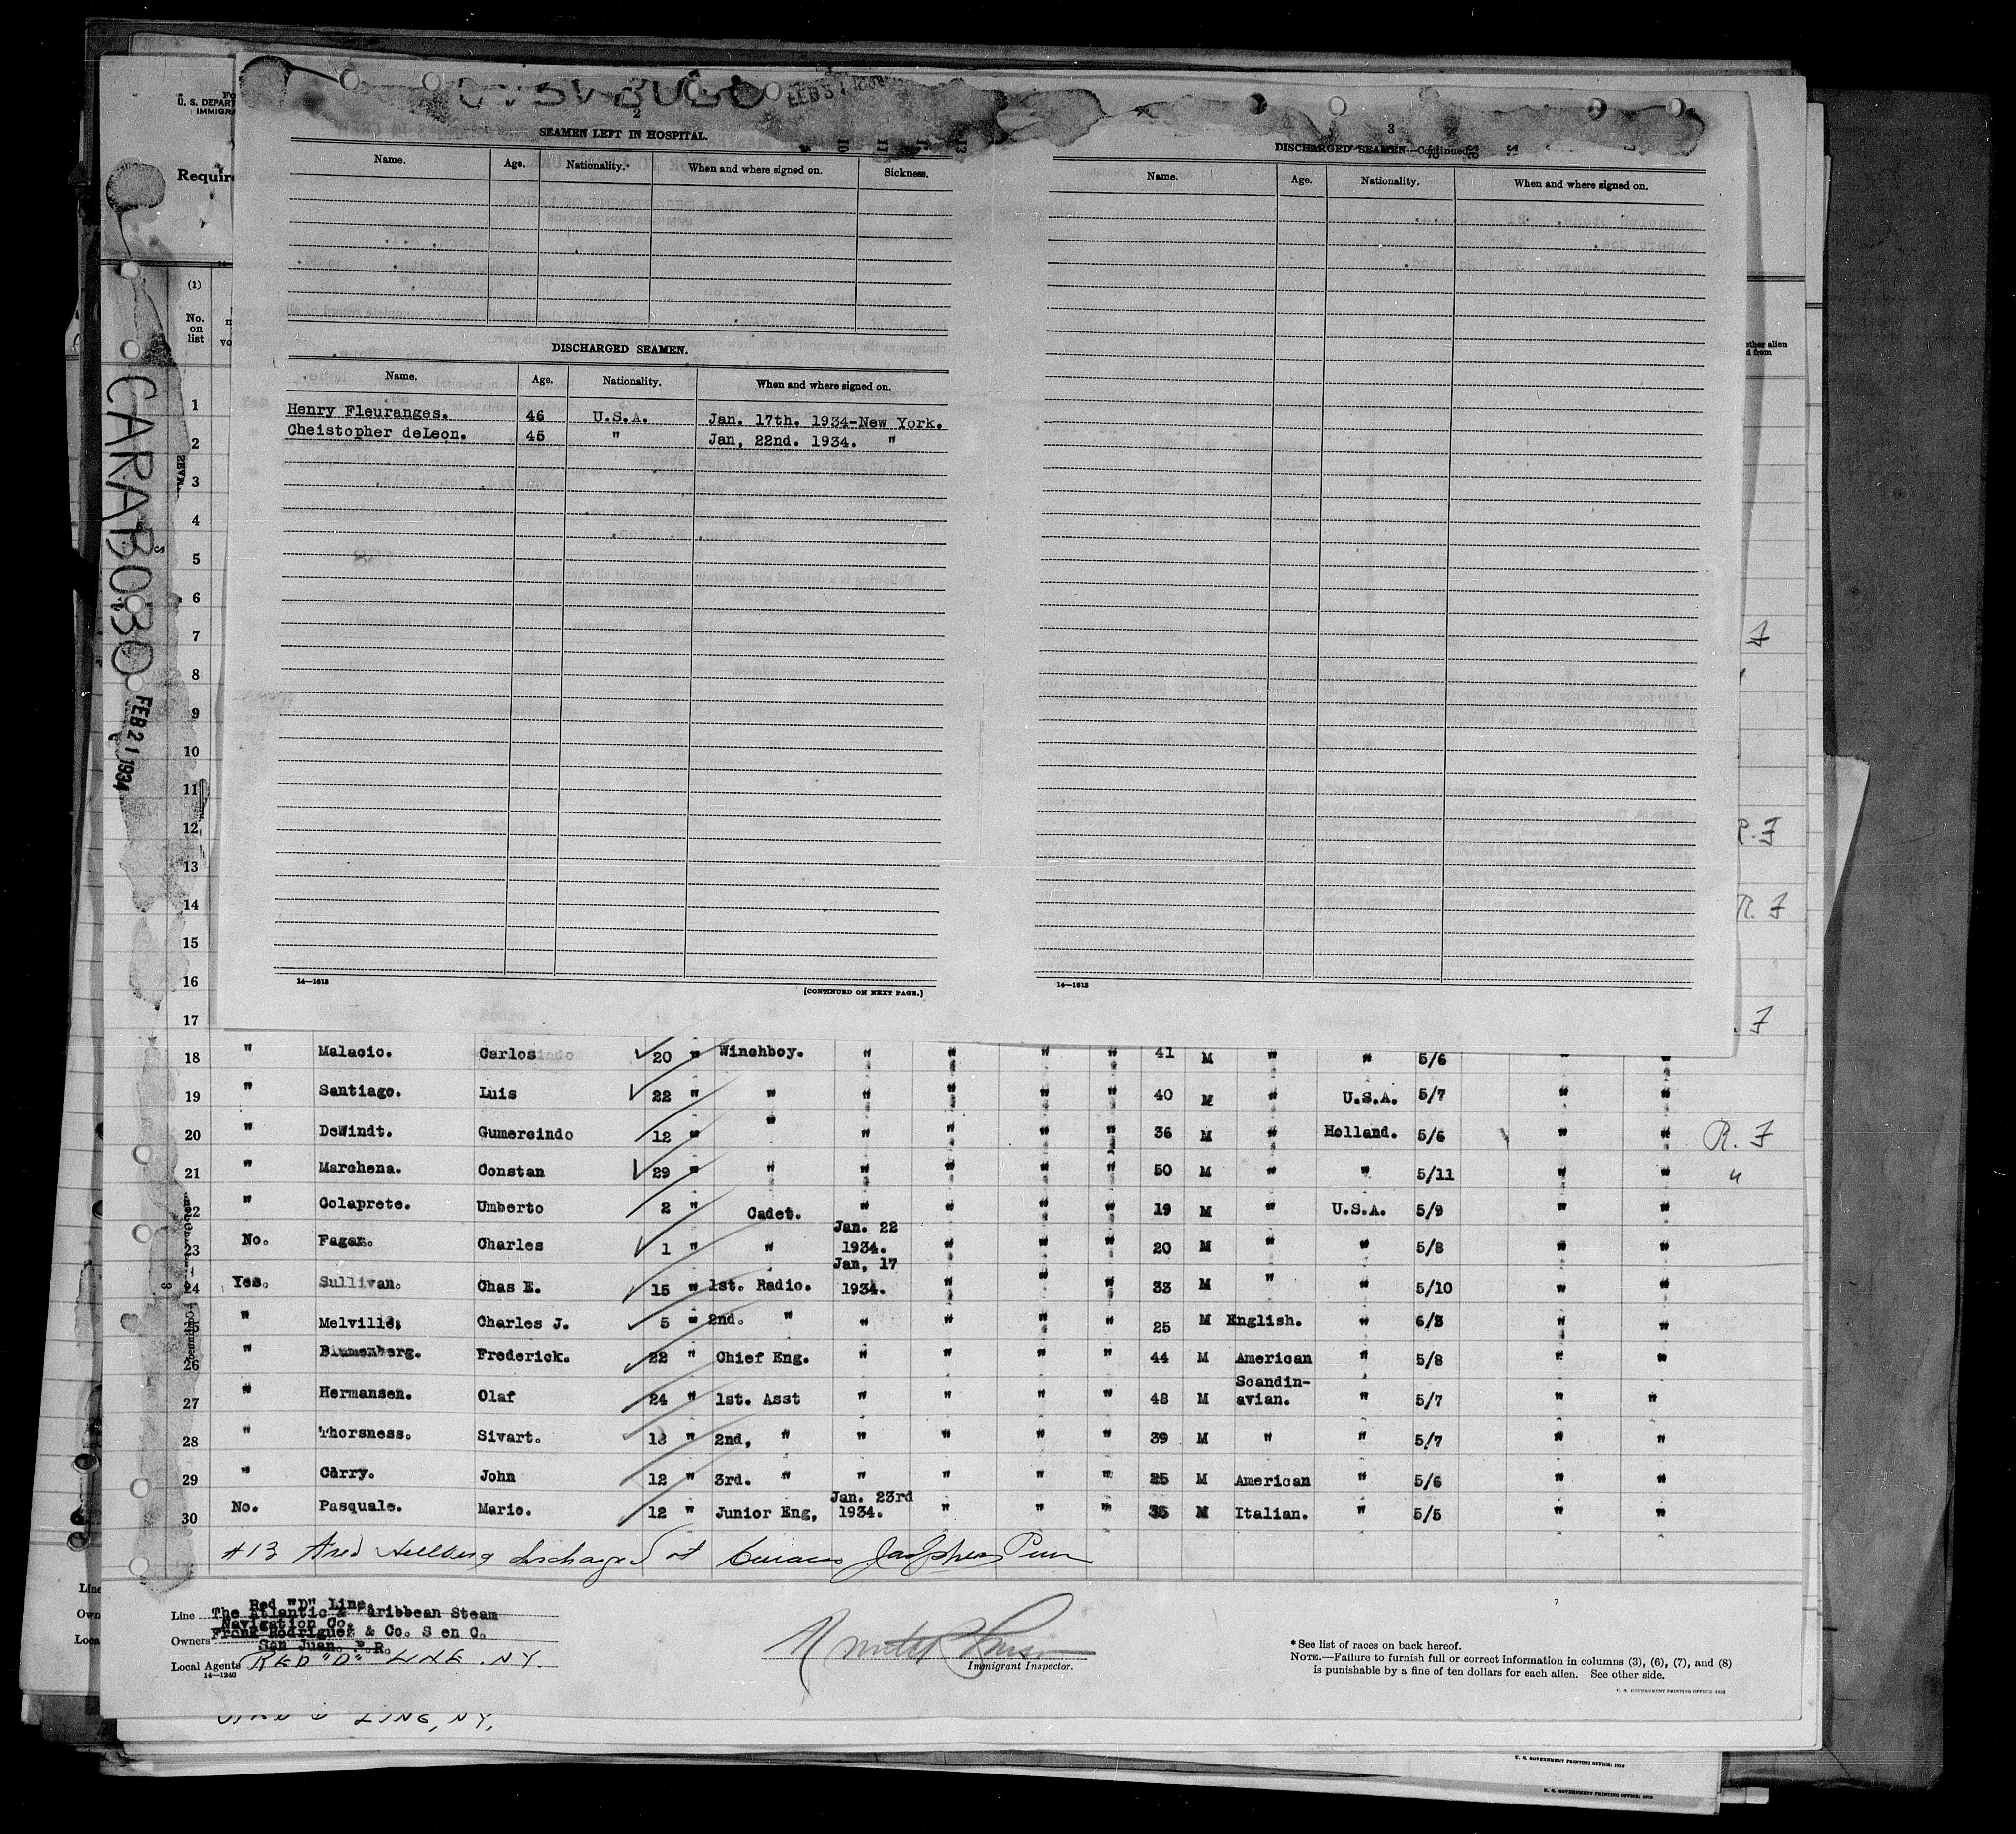 CARABOBO
FEB 21 1934
U. S. DEPART
IMMIGRA
Require
(1)
No.
on
list
2
SEAMEN LEFT IN HOSPITAL.
Name. Age. Nationality. When and where signed on. Sickness.
DISCHARGED SEAMEN.
Name. Age. Nationality. When and where signed on.
Henry Fleuranges. 46 U.S.A. Jan. 17th. 1934-New York.
Cheistopher deLeon. 45 " Jan, 22nd. 1934. "
14—1613
[CONTINUED ON NEXT PAGE.]
3
DISCHARGED SEAMEN—Continued.
Name. Age. Nationality. When and where signed on.
14—1613
1
2
3
4
5
6
7
8
9
10
11
12
13
14
15
16
17
18 " Malacio. Carlos 20 " Winchboy. " " " " 41 M " " 5/6 " "
19 " Santiago. Luis 22 " " " " " " 40 M " U.S.A. 5/7 " "
20 " DeWindt. Gumercindo 12 " " " " " " 36 M " Holland. 5/6 " " R. F
21 " Marchena. Constan 29 " " " " " " 50 M " " 5/11 " " "
22 " Colaprete. Umberto 2 " Cadet. " " " " 19 M " U.S.A. 5/9 " "
23 No. Fagan. Charles 1 " " Jan. 22 1934. " " " 20 M " " 5/8 " "
24 Yes. Sullivan. Chas E. 15 " 1st. Radio. Jan, 17 1934. " " " 33 M " " 5/10 " "
25 " Melville. Charles J. 5 " 2nd. " " " " " 25 M English. " 6/3 " "
26 " Blumenberg. Frederick. 22 " Chief Eng. " " " " 44 M American " 5/8 " "
27 " Hermansen. Olaf 24 " 1st. Asst " " " " 48 M Scandin-avian. " 5/7 " "
28 " Thorsness. Sivart. 13 " 2nd, " " " " " 39 M " " 5/7 " "
29 " Carry. John 12 " 3rd. " " " " " 25 M American " 5/6 " "
30 No. Pasquale. Mario. 12 " Junior Eng, Jan. 23rd 1934. " " " 35 M Italian. " 5/5 " "
#13 discharged at
Red "D" Line.
Line The Atlantic & Caribbean Steam
Navigation Co.
Owners Frank Rodriguez & Co. S en C.
San Juan. P.R.
Local Agents RED "D" LINE. NY.
14—1240
Immigrant Inspector.
* See list of races on back hereof.
NOTE.—Failure to furnish full or correct information in columns (3), (6), (7), and (8)
is punishable by a fine of ten dollars for each alien. See other side.
LINE, NY,
U. S. GOVERNMENT PRINTING OFFICE:
U. S. GOVERNMENT PRINTING OFFICE: